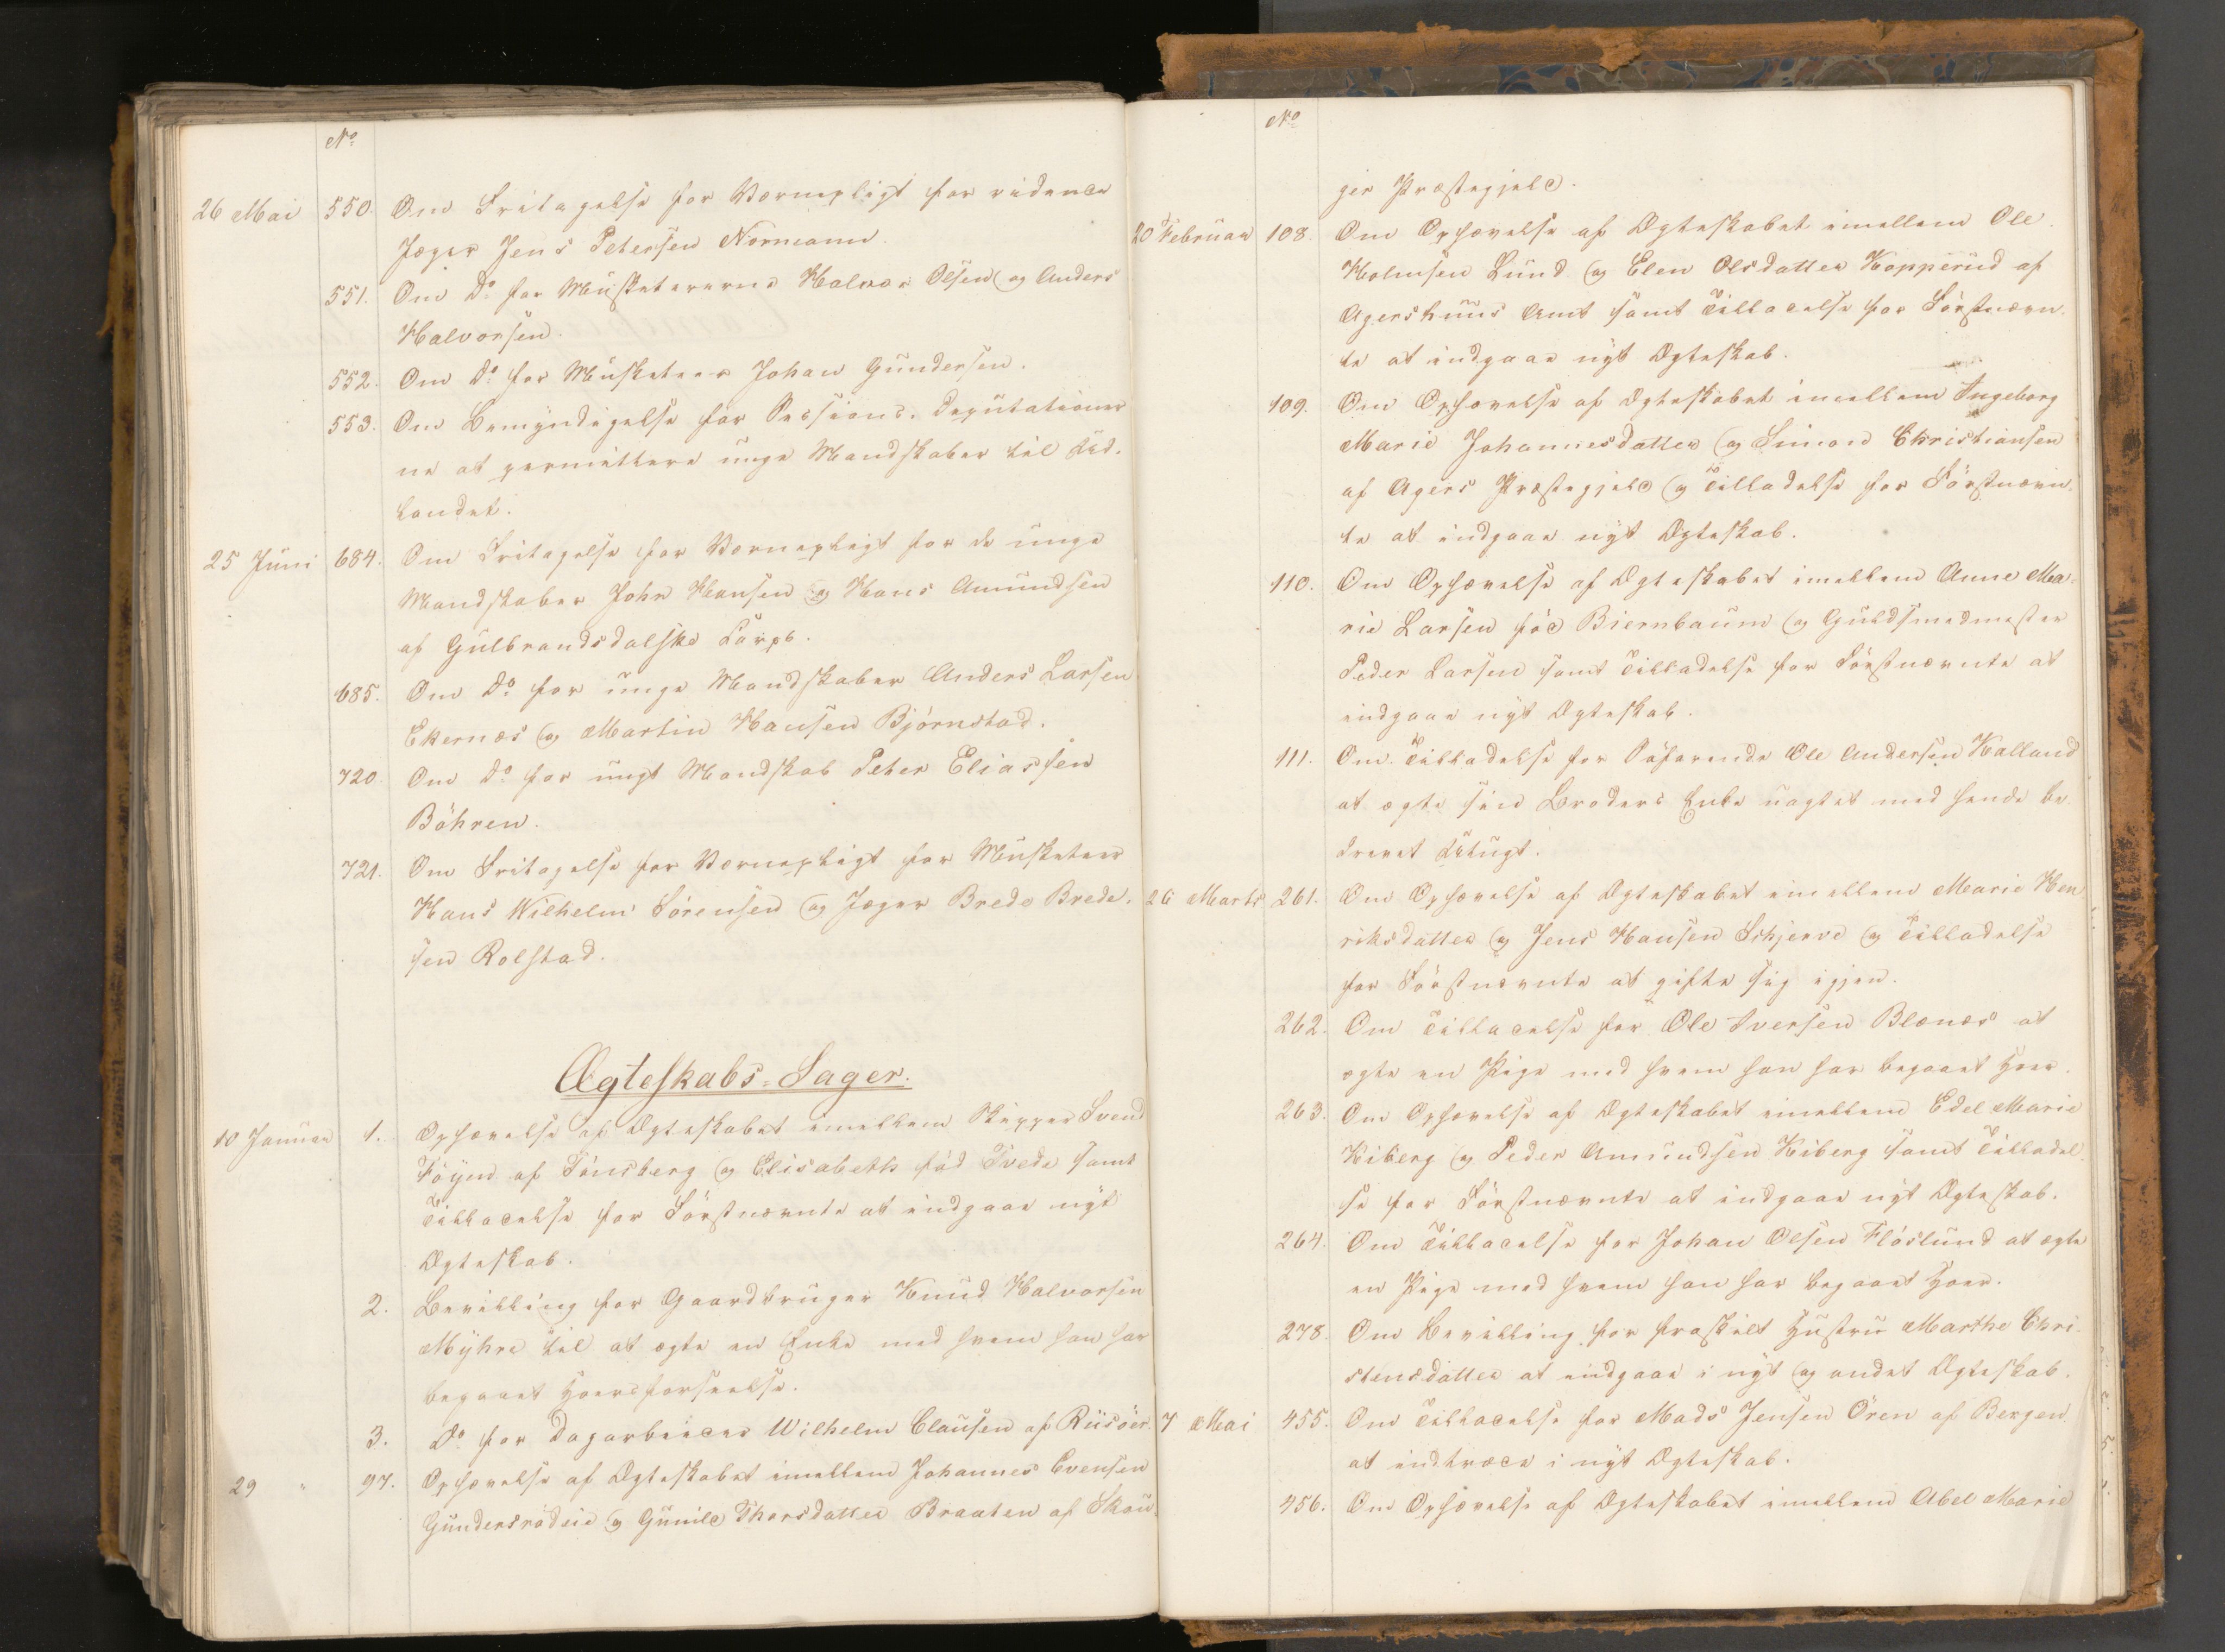 No
26 Mai 550. Om Fritagelse for Værnepligt for ridende
Jæger Jens Petersen Normann.
551. Om Do for Musketererne Halvor Olsen og Anders
Halvorsen.
552. Om Do for Musketeer Johan Gundersen.
553. Om Bemyndigelse for Sessions-Deputationer
ne at permittere unge Mandskaber til Ud-
landet.
25 Juni 684. Om Fritagelse for Værnepligt for de unge
Mandskaber John Hansen og Hans Amundsen
af Gulbrandsdalske Corps.
685. Om Do for unge Mandskaber Anders Larsen
Ekernæs og Martin Hansen Björnstad.
720. Om Do for ungt Mandskab Peter Eliassen
Böhren.
721. Om Fritagelse for Værnepligt for Musketeer
Hans Wilhelm Sörensen og Jæger Brede Brede-
sen Rolstad.
Ægteskabs-Sager.
10 Januar 1. Ophævelse af Ægteskabet imellem Skipper Svend
Föyn af Tönsberg og Elisabeth föd Tvede samt
Tilladelse for Förstnævnte at indgaae nyt
Ægteskab.
2. Bevilling for Gaardbruger Knud Halvorsen
Myhre til at ægte en Enke med hvem han har
begaaet Hoersforseelse.
3. Do for Dagarbeider Wilhelm Clausen af Riisöer.
29 " 97. Ophævelse af Ægteskabet imellem Johannes Evensen
Gundersrödeie og Gunild Thorsdatter Braaten af Skou-
No
ger Præstegjeld.
20 Februar 108. Om Ophævelse af Ægteskabet imellem Ole
Holmsen Lund og Elen Olsdatter Kopperud af
Agershuus Amt samt Tilladelse for Förstnævn-
te at indgaae nyt Ægteskab.
109. Om Ophævelse af Ægteskabet imellem Ingeborg
Marie Johannesdatter og Simon Christiansen
af Agers Præstegjeld og Tilladelse for Förstnævn-
te at indgaae nyt Ægteskab.
110. Om Ophævelse af Ægteskabet imellem Anne Ma-
rie Larsen föd Biernbaum og Guldsmedmester
Peder Larsen samt Tilladelse for Förstnævnte at
indgaae nyt Ægteskab.
111. Om Tilladelse for Söfarende Ole Andersen Kalland
at ægte sin Broders Enke uagtet med hende be
drevet Utugt.
26 Marts 261. Om Ophævelse af Ægteskabet imellem Marie Hen
riksdatter og Jens Hansen Schjerve og Tilladelse
for Förstnævnte at gifte sig igjen.
262. Om Tilladelse for Ole Iversen Blænes at
ægte en Pige med hvem han har begaaet Hoer.
263. Om Ophævelse af Ægteskabet imellem Edel Marie
Kiberg og Peder Amundsen Kiberg samt Tilladel
se for Förstnævnte at indgaae nyt Ægteskab.
264. Om Tilladelse for Johan Olsen Flöslund at ægte
en Pige med hvem han har begaaet Hoer.
278. Om Bevilling for fraskilt Hustru Marthe Chri-
stensdatter at indgaae i nyt og andet Ægteskab.
7 Mai 455. Om Tilladelse for Mads Jensen Ören af Bergen
at indtræde i nyt Ægteskab.
456. Om Ophævelse af Ægteskabet imellem Abel Marie